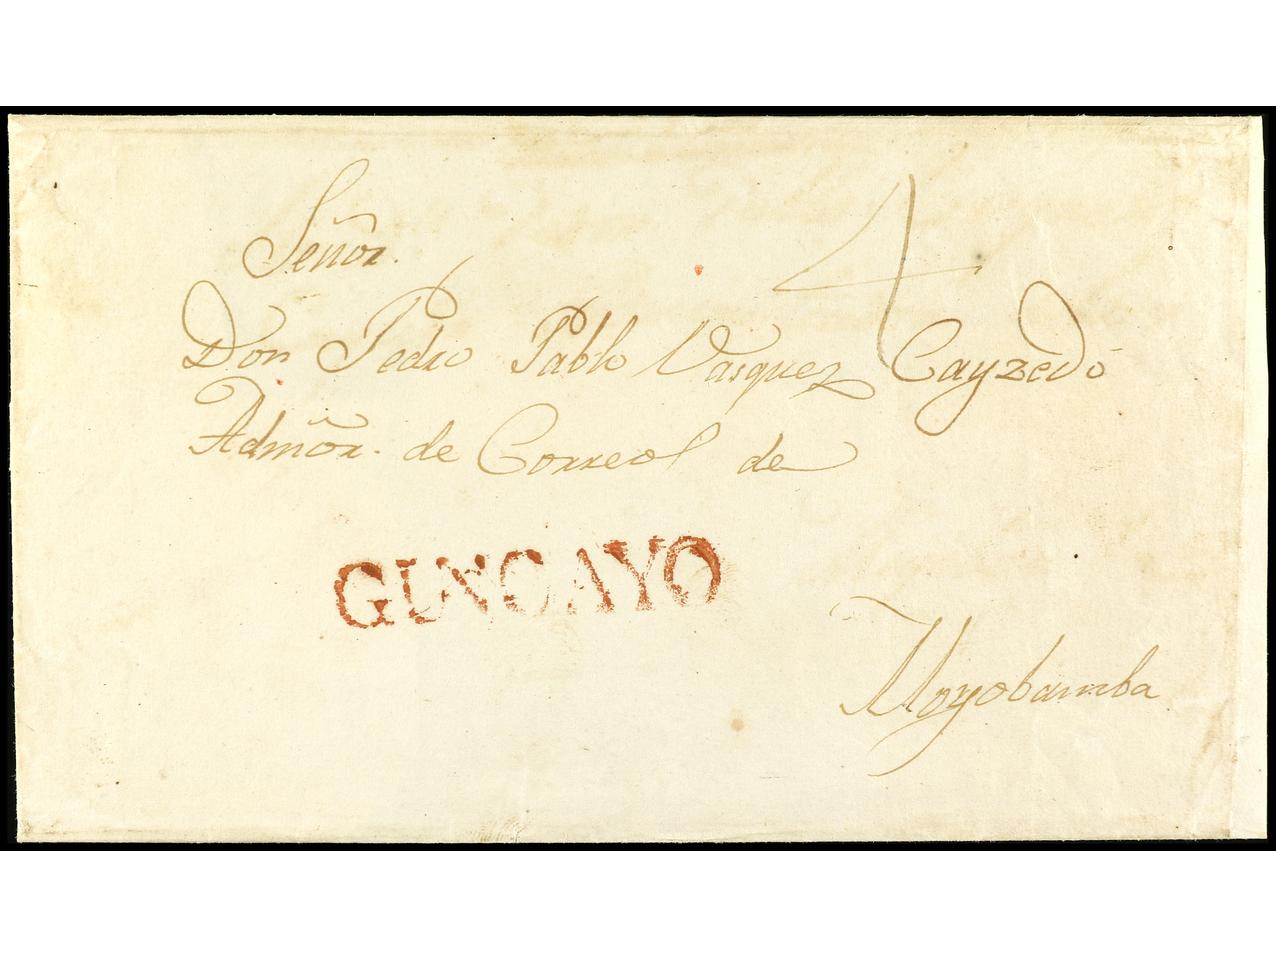 Señor.
4
Don Pedro Pablo Vasquez Cayzedo
Admõr. de Correos de
GUNCAYO
Moyobamba